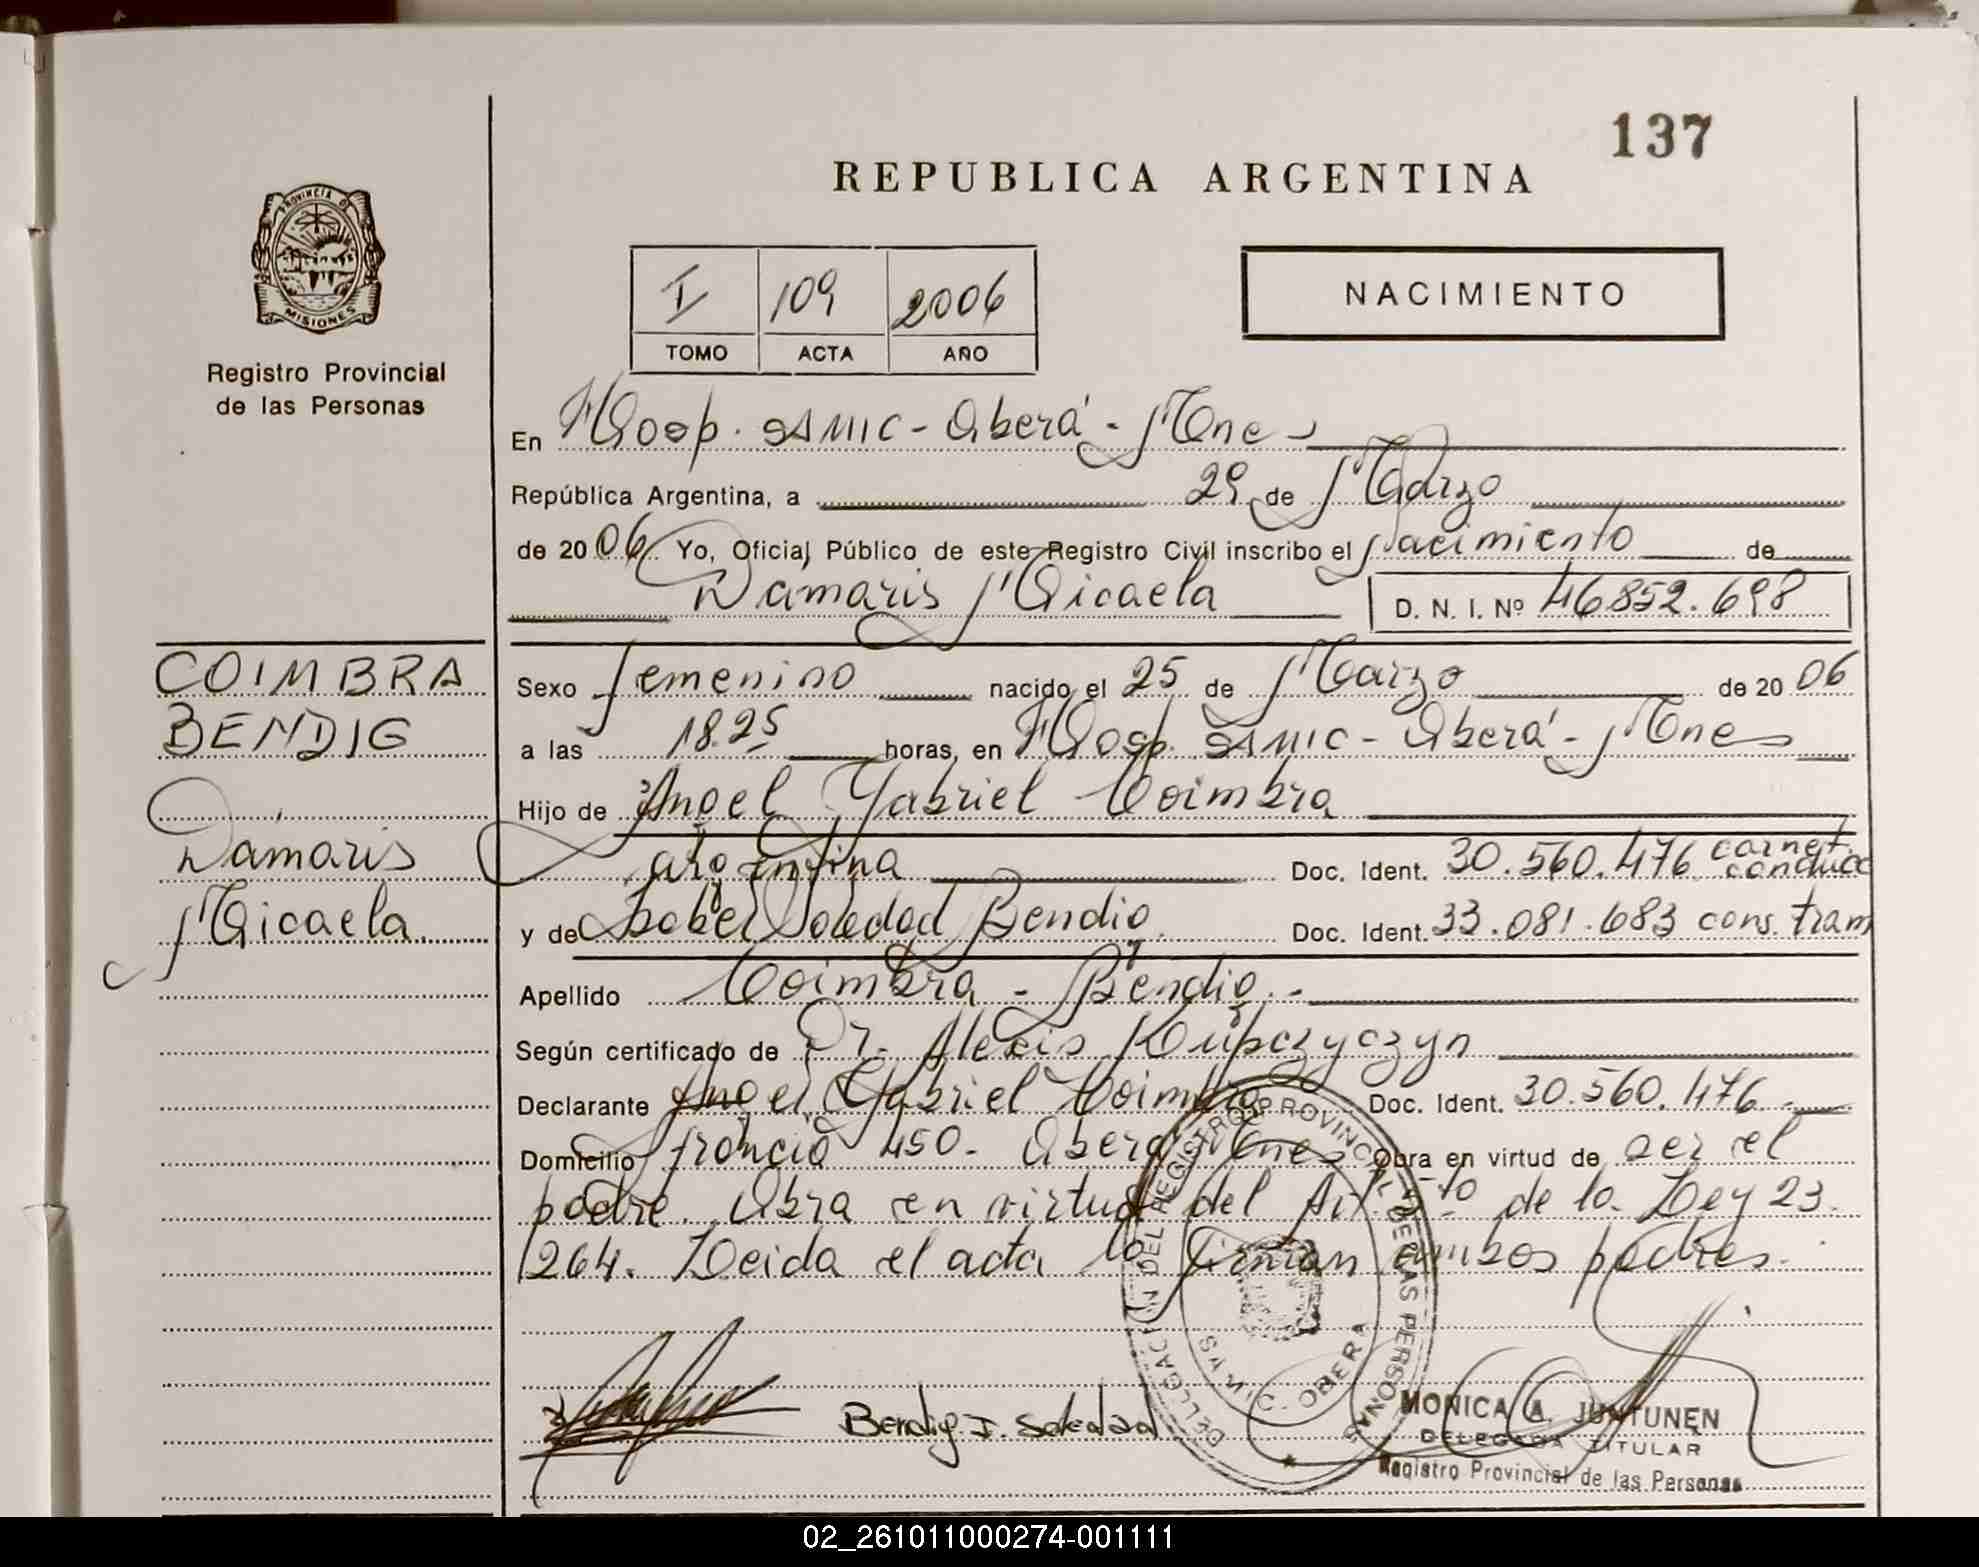 137
REPUBLICA ARGENTINA
PROVINCIA DE
MISIONES
Registro Provincial
de las Personas
I 109 2006
TOMO ACTA AÑO
NACIMIENTO
En Hosp. SAMIC - Oberá - Mnes
República Argentina, a 29 de Marzo
de 2006 Yo, Oficial Público de este Registro Civil inscribo el Nacimiento de
Damaris Micaela D. N. I. Nº 46852.698
COIMBRA
BENDIG
Damaris
Micaela
Sexo femenino nacido el 25 de Marzo de 2006
a las 18.25 horas, en Hosp. SAMIC - Oberá - Mnes
Hijo de Angel Gabriel Coimbra
argentina Doc. Ident. 30.560.476 carnet conduc
y de Isabel Soledad Bendig Doc. Ident. 33.081.683 cons. tram
Apellido Coimbra - Bendig.-
Según certificado de Dr. Alexis Kupczyczyn
Declarante Angel Gabriel Coimbra Doc. Ident. 30.560.476
Domicilio francia 450. Oberá Mnes Obra en virtud de ser el
padre. Obra en virtud del Art. 5to de la Ley 23.
264. Leida el acta la firman ambos padres.
Bendig I. Soledad
DELEGACION DEL REGISTRO PROVINCIAL DE LAS PERSONAS
OBERA
MONICA A. JUNTUNEN
DELEGADA TITULAR
Registro Provincial de las Personas
02_261011000274-001111